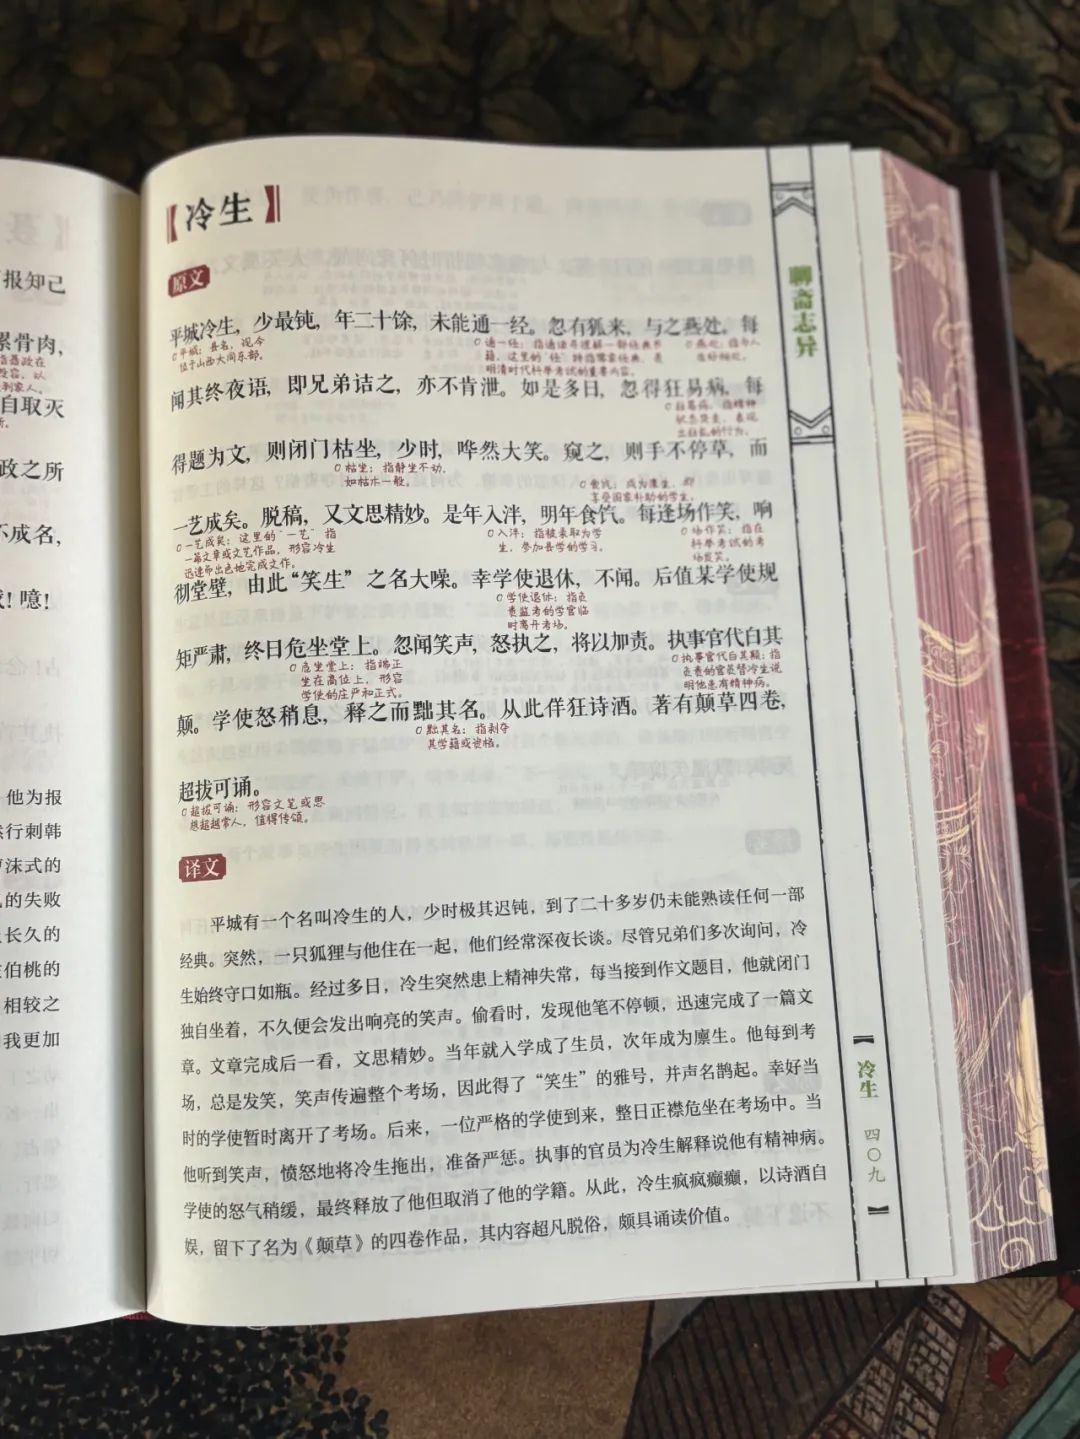 报知己
累骨肉，
自取灭
政之所
不成名，
！噫！
他为报
行刺韩
沫式的
的失败
长久的
伯桃的
相较之
我更加
【冷生】
原文
平城冷生，少最钝，年二十馀，未能通一经。忽有狐来，与之燕处。每
平城：县名，现今
位于山西大同东部。
通一经：指通读并理解一部经典书
籍，这里的“经”特指儒家经典，是
明清时代科举考试的重要内容。
燕处：指与人
友好相处。
闻其终夜语，即兄弟诘之，亦不肯泄。如是多日，忽得狂易病，每
狂易病：指精神
状态突变，表现
出狂乱的行为。
得题为文，则闭门枯坐，少时，哗然大笑。窥之，则手不停草，而
枯坐：指静坐不动，
如枯木一般。
食饩：成为廪生，即
享受国家补助的学生。
一艺成矣。脱稿，又文思精妙。是年入泮，明年食饩。每逢场作笑，响
一艺成矣：这里的“一艺”指
一篇文章或文艺作品，形容冷生
迅速而出色地完成文作。
入泮：指被录取为学
生，参加县学的学习。
场作笑：指在
科举考试的考
场发笑。
彻堂壁，由此“笑生”之名大噪。幸学使退休，不闻。后值某学使规
学使退休：指负
责监考的学官临
时离开考场。
矩严肃，终日危坐堂上。忽闻笑声，怒执之，将以加责。执事官代白其
危坐堂上：指端正
坐在高位上，形容
学使的庄严和正式。
执事官代白其颠：指
负责的官员替冷生说
明他患有精神病。
颠。学使怒稍息，释之而黜其名。从此佯狂诗酒。著有颠草四卷，
黜其名：指剥夺
其学籍或资格。
超拔可诵。
超拔可诵：形容文笔或思
想超越常人，值得传颂。
译文
平城有一个名叫冷生的人，少时极其迟钝，到了二十多岁仍未能熟读任何一部
经典。突然，一只狐狸与他住在一起，他们经常深夜长谈。尽管兄弟们多次询问，冷
生始终守口如瓶。经过多日，冷生突然患上精神失常，每当接到作文题目，他就闭门
独自坐着，不久便会发出响亮的笑声。偷看时，发现他笔不停顿，迅速完成了一篇文
章。文章完成后一看，文思精妙。当年就入学成了生员，次年成为廪生。他每到考
场，总是发笑，笑声传遍整个考场，因此得了“笑生”的雅号，并声名鹊起。幸好当
时的学使暂时离开了考场。后来，一位严格的学使到来，整日正襟危坐在考场中。当
他听到笑声，愤怒地将冷生拖出，准备严惩。执事的官员为冷生解释说他有精神病。
学使的怒气稍缓，最终释放了他但取消了他的学籍。从此，冷生疯疯癫癫，以诗酒自
娱，留下了名为《颠草》的四卷作品，其内容超凡脱俗，颇具诵读价值。
聊斋志异
冷生
四〇九